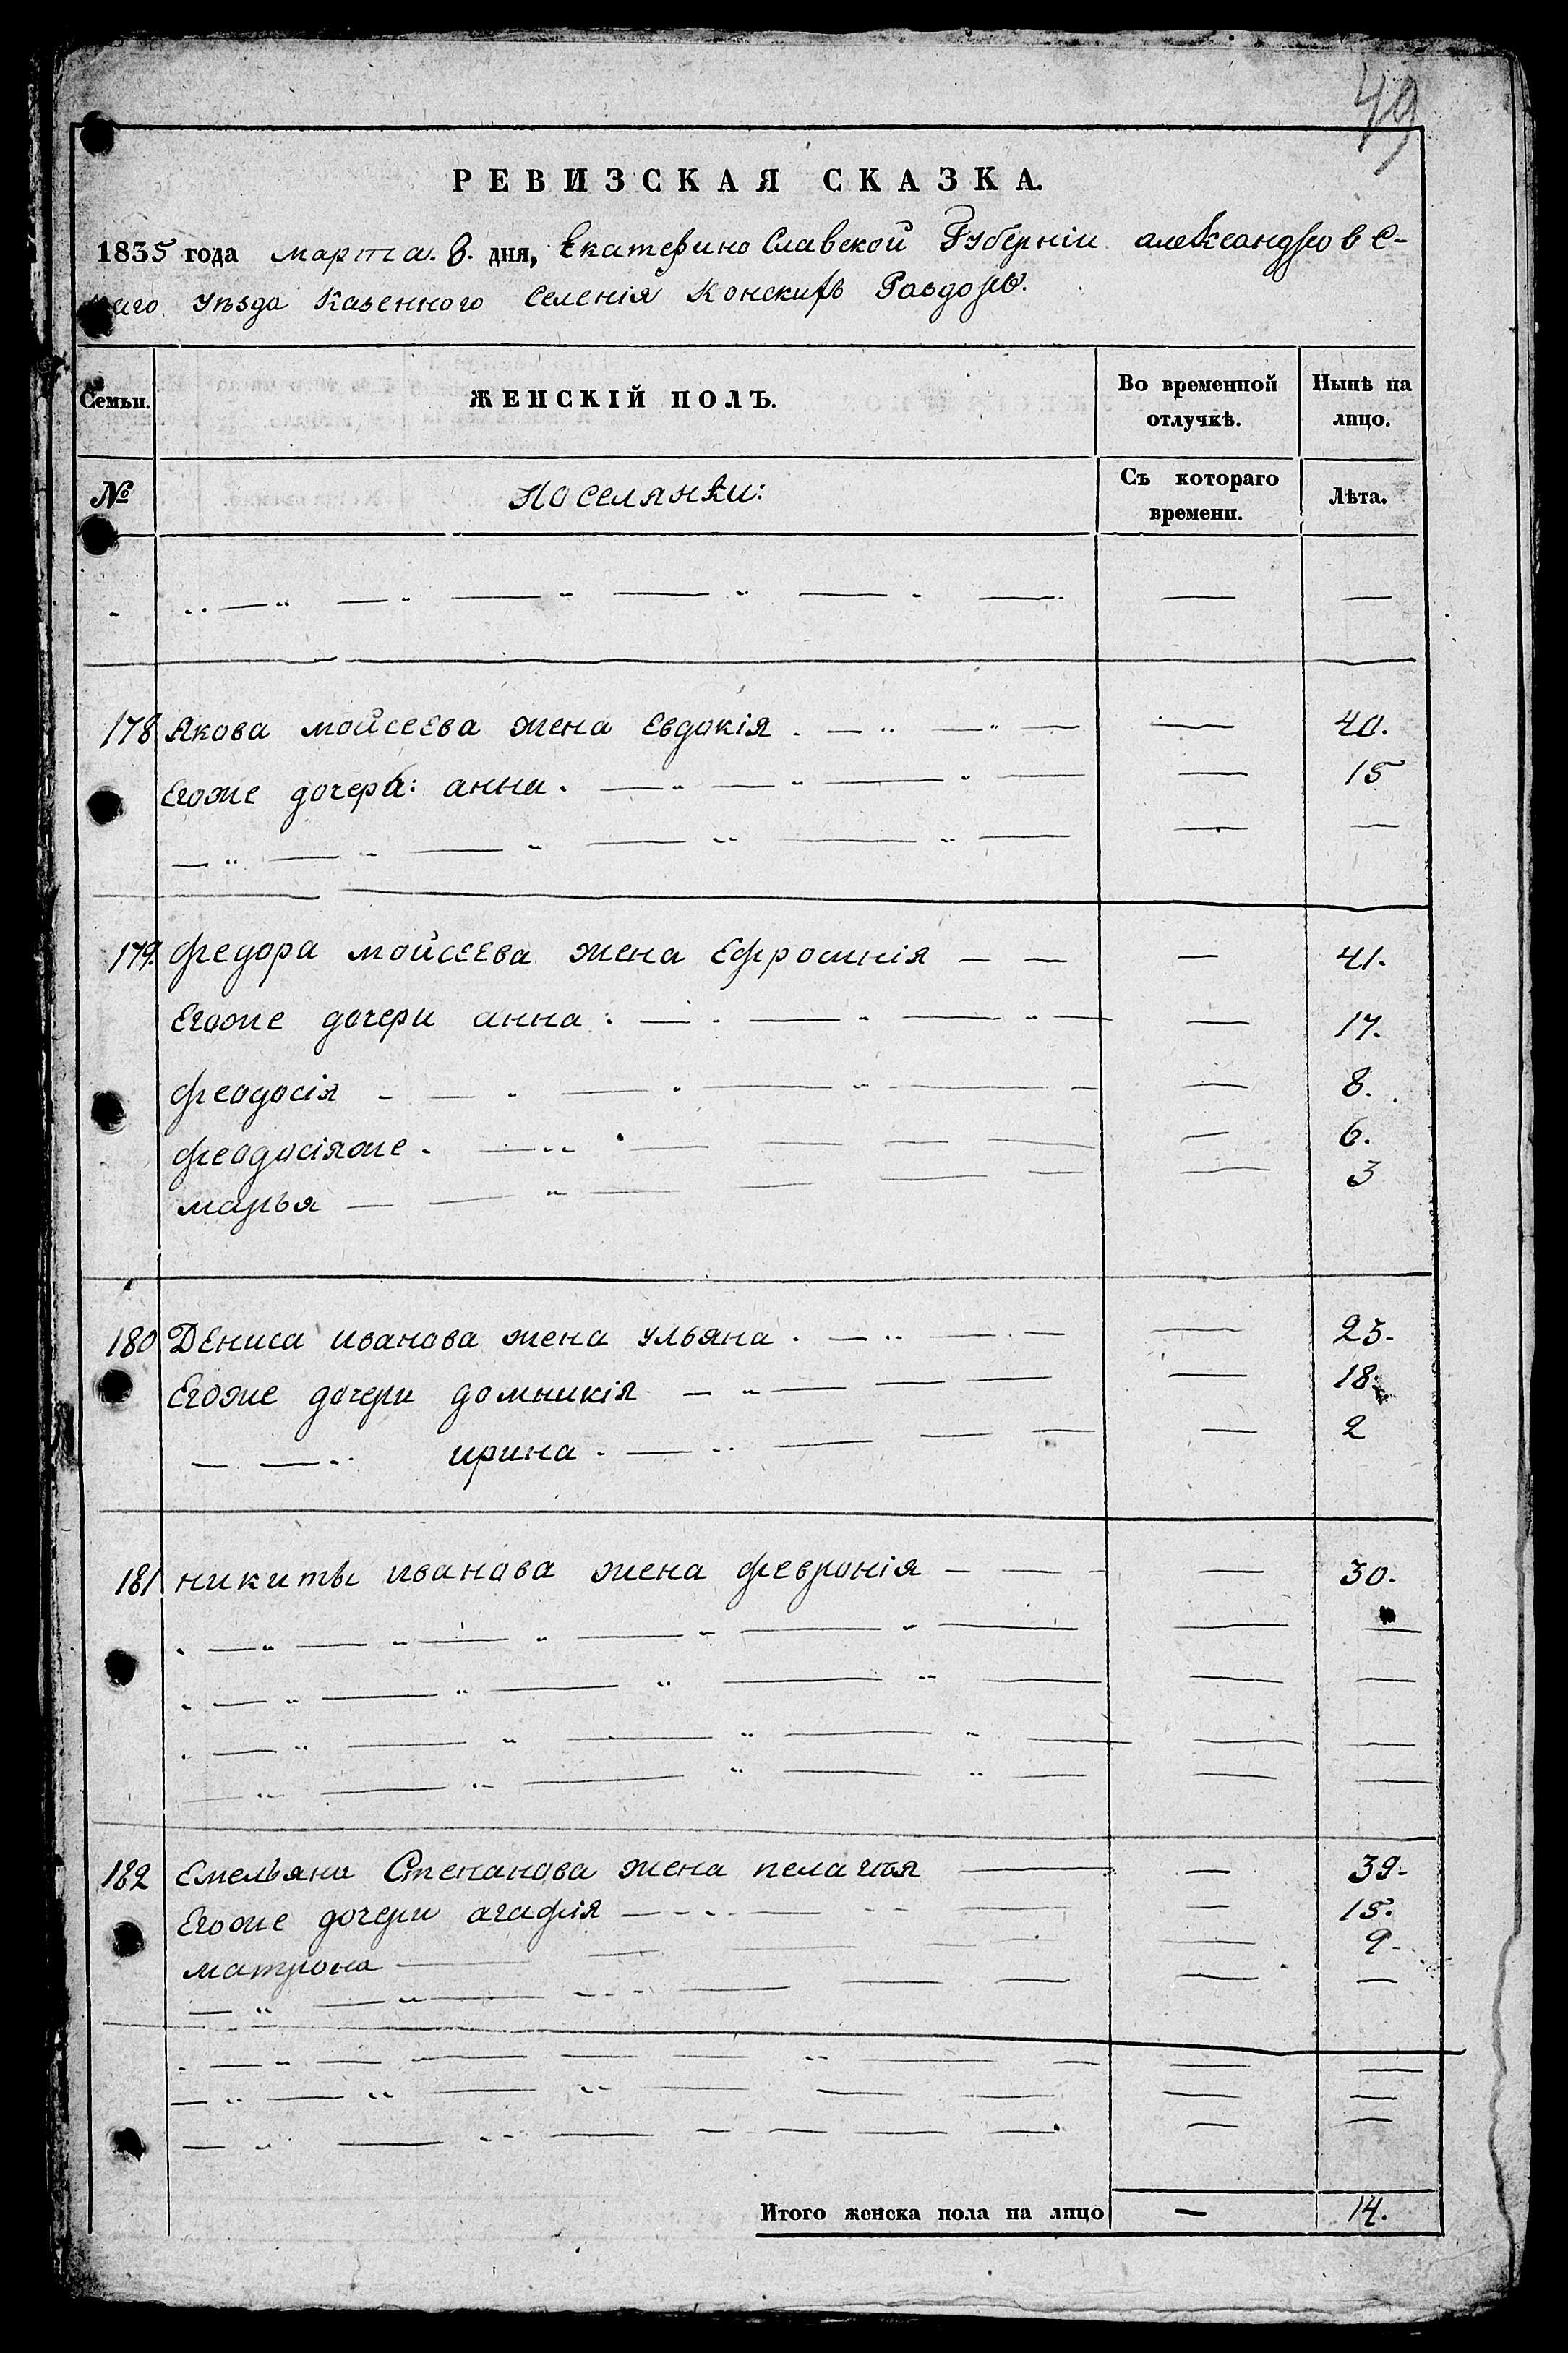 49
РЕВИЗСКАЯ СКАЗКА.
1835 года марта 8. дня, Екатеринославской Губерніи александровс-
каго Уѣзда Казенного Селенія Конскихъ Раздоръ.
Семьи. ЖЕНСКІЙ ПОЛЪ. Во временной отлучкѣ. Нынѣ на лицо.
№ Поселянки: Съ котораго времени. Лѣта.
178 Якова мойсеева жена Евдокія — 40.
Егоже дочера: анна — 15
179. Федора мойсеева жена Ефросинія — 41.
Егоже дочери анна — 17.
феодосія — 8.
феодосіяже — 6.
марья — 3
180 Дениса иванова жена ульяна — 23.
Егоже дочери домникія — 18.
ирина — 2
181 никиты иванова жена феvронія — 30.
182 Емельяна Степанова жена пелагія — 39.
Егоже дочери агафія — 15.
матрона — 9.
Итого женска пола на лицо — 14.